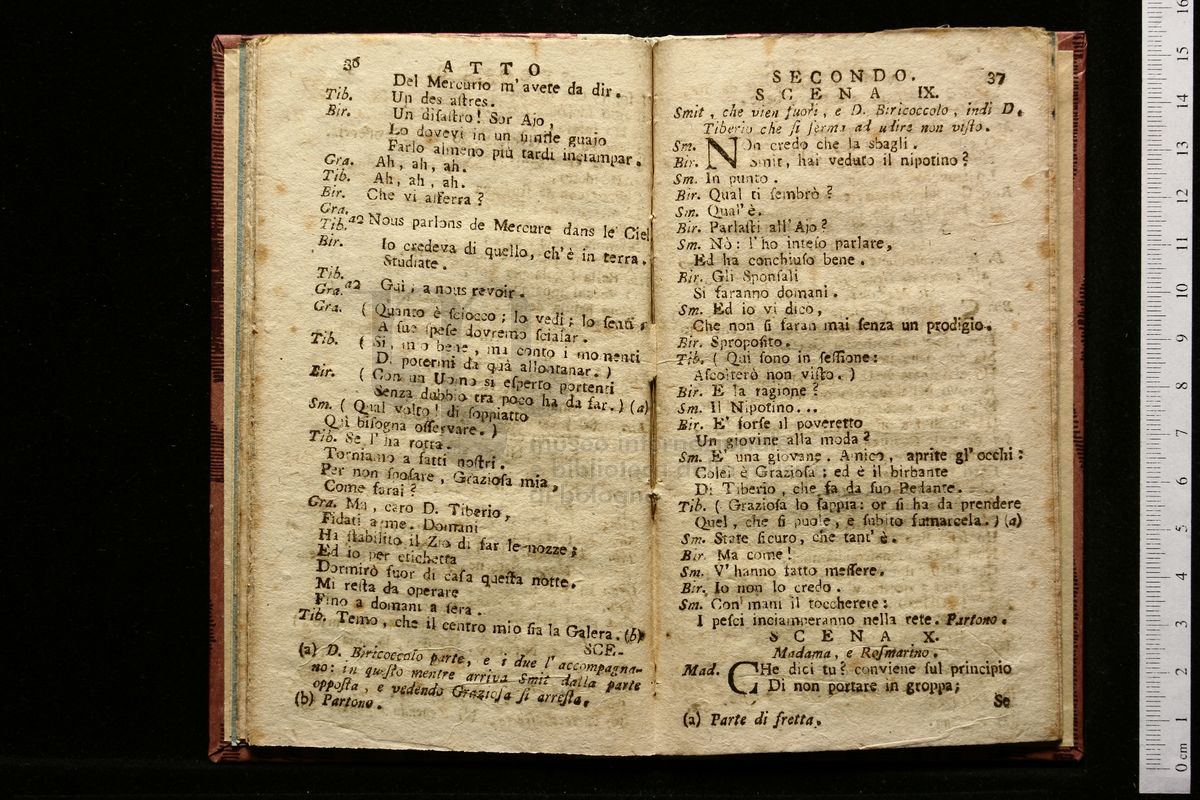 36
ATTO
Del Mercurio m' avete da dir.
Tib. Un des aſtres.
Bir. Un diſaſtro! Sor Ajo,
Lo dovevi in un ſimile guaio
Farlo almeno più tardi inciampar.
Gra. Ah, ah, ah.
Tib. Ah, ah, ah.
Bir. Che vi afferra?
Gra.
Tib. a2 Nous parlons de Mercure dans le Ciel
Bir. Io credeva di quello, ch'è in terra.
Studiate.
Tib.
Gra. a2 Gui, a nous revoir.
Gra. (Quanto è ſciocco; lo vedi; lo ſenti;
A ſue ſpeſe dovremo ſcialar.
Tib. (Si, mio bene, ma conto i momenti
Di potermi da quà allontanar.)
Bir. (Con un Uomo sì eſperto portenti
Senza dubbio tra poco ha da far.) (a)
Sm. (Qual volto! di ſoppiatto
Qui biſogna oſſervare.)
Tib. Se l' ha rotta.
Torniamo a fatti noſtri.
Per non ſpoſare, Grazioſa mia,
Come farai?
Gra. Ma, caro D. Tiberio,
Fidati a me. Domani
Ha ſtabilito il Zio di far le nozze;
Ed io per etichetta
Dormirò fuor di caſa queſta notte.
Mi reſta da operare
Fino a domani a ſera.
Tib. Temo, che il centro mio ſia la Galera. (b)
SCE-
(a) D. Biricoccolo parte, e i due l' accompagna-
no: in queſto mentre arriva Smit dalla parte
oppoſta, e vedendo Grazioſa ſi arreſta.
(b) Partono.
SECONDO.
37
SCENA IX.
Smit, che vien fuori, e D. Biricoccolo, indi D.
Tiberio che ſi ferma ad udire non viſto.
Sm. NOn credo che la sbagli.
Bir. Smit, hai veduto il nipotino?
Sm. In punto.
Bir. Qual ti ſembrò?
Sm. Qual' è.
Bir. Parlaſti all' Ajo?
Sm. Nò: l' ho inteſo parlare,
Ed ha conchiuſo bene.
Bir. Gli Sponſali
Si faranno domani.
Sm. Ed io vi dico,
Che non ſi faran mai ſenza un prodigio.
Bir. Spropoſito.
Tib. (Qui ſono in ſeſſione:
Aſcolterò non viſto.)
Bir. E la ragione?
Sm. Il Nipotino...
Bir. E' forſe il poveretto
Un giovine alla moda?
Sm. E' una giovane. Amico, aprite gl' occhi:
Colei è Grazioſa; ed è il birbante
Di Tiberio, che fa da ſuo Pedante.
Tib. (Grazioſa lo ſappia: or ſi ha da prendere
Quel, che ſi puole, e ſubito fumarcela.) (a)
Sm. State ſicuro, che tant' è.
Bir. Ma come!
Sm. V' hanno fatto meſſere.
Bir. Io non lo credo.
Sm. Con' mani il toccherete:
I peſci inciamperanno nella rete. Partono.
SCENA X.
Madama, e Roſmarino.
Mad. CHe dici tu? conviene ſul principio
Di non portare in groppa;
Se
(a) Parte di fretta.
0 cm 1 2 3 4 5 6 7 8 9 10 11 12 13 14 15 16